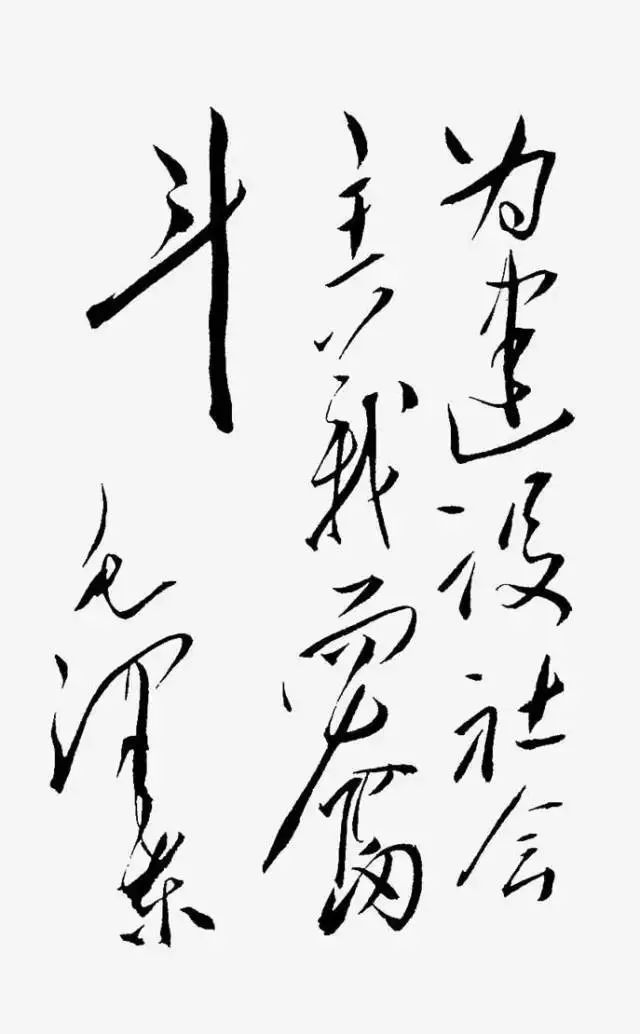 为建设社会
主義而奮
斗
毛泽东